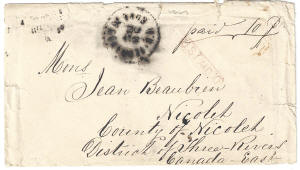 paid 10
Mons
Jean Beaubien
Nicolet
County of Nicolet
District of Three-Rivers
Canada-East